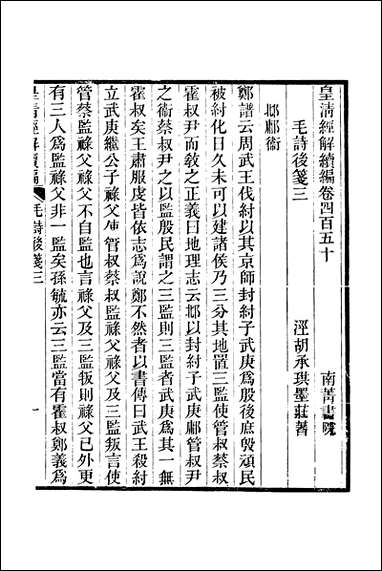 皇清經解續編卷四百五十 南菁書院
毛詩後箋三 涇胡承珙墨莊著
邶鄘衞
鄭譜云周武王伐紂以其京師封紂子武庚爲殷後庶殷頑民
被紂化日久未可以建諸侯乃三分其地置三監使管叔蔡叔
霍叔尹而敎之正義曰地理志云邶以封紂子武庚鄘管叔尹
之衞蔡叔尹之以監殷民謂之三監則三監者武庚爲其一無
霍叔矣王肅服虔皆依志爲說鄭不然者以書傳曰武王殺紂
立武庚繼公子祿父使管叔蔡叔監祿父祿父及三監叛言使
管蔡監祿父祿父不自監也言祿父及三監叛則祿父已外更
有三人爲監祿父非一監矣孫毓亦云三監當有霍叔鄭義爲
皇清經解續編 毛詩後箋三 一